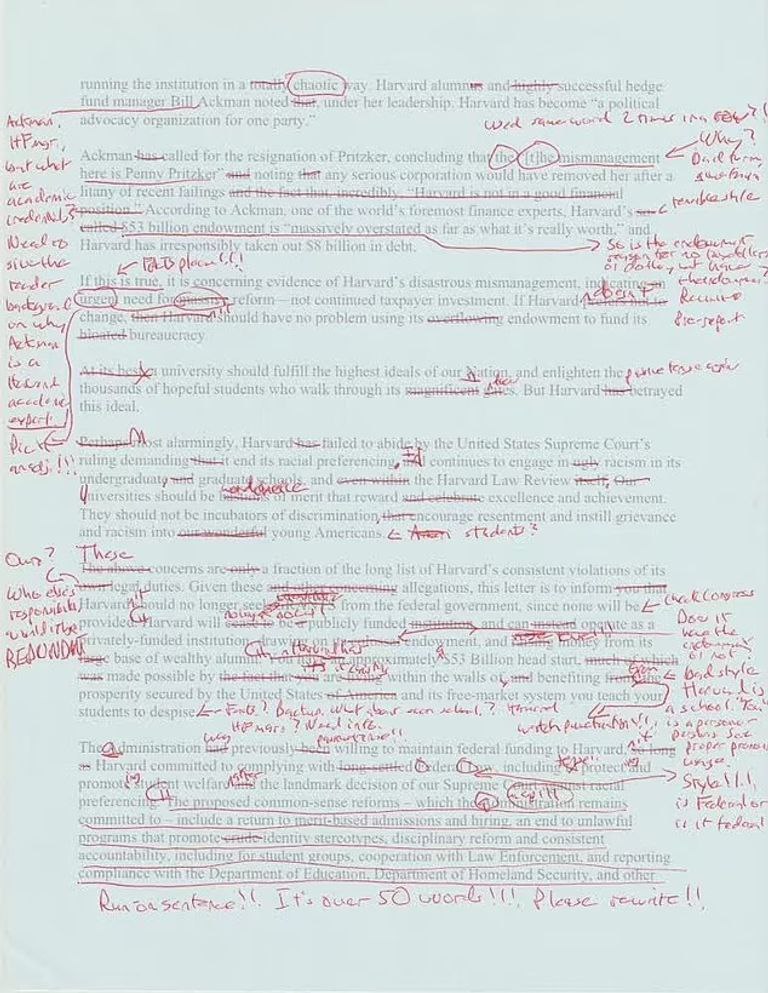 running the institution in a totally chaotic way. Harvard alumnus and highly successful hedge
fund manager Bill Ackman noted that, under her leadership. Harvard has become “a political
advocacy organization for one party.”
Used same word 2 times in a
Why?
Ackman,
HF mgr,
but what
are
academic
credentials?
Need to
give the
reader
background
on why
Ackman
is a
Harvard
academic
expert!
Ackman has called for the resignation of Pritzker, concluding that the “[t]he mismanagement
here is Penny Pritzker” and noting that any serious corporation would have removed her after a
litany of recent failings and the fact that, incredibly, “Harvard is not in a good financial
position.” According to Ackman, one of the world’s foremost finance experts, Harvard’s so-
called $53 billion endowment is “massively overstated as far as what it’s really worth.” and
Harvard has irresponsibly taken out $8 billion in debt.
terrible style
So is the endowment
Facts please!!!
If this is true, it is concerning evidence of Harvard’s disastrous mismanagement, indicating an
urgent need for massive reform – not continued taxpayer investment. If Harvard
change, then Harvard should have no problem using its overflowing endowment to fund its
bloated bureaucracy.
Pick
an adj!!!
At its best, a university should fulfill the highest ideals of our Nation, and enlighten the
thousands of hopeful students who walk through its magnificent gates. But Harvard has betrayed
this ideal.
Perhaps most alarmingly, Harvard has failed to abide by the United States Supreme Court’s
ruling demanding that it end its racial preferencing, and continues to engage in ugly racism in its
undergraduate and graduate schools, and even within the Harvard Law Review itself. Our
universities should be of merit that reward and celebrate excellence and achievement.
They should not be incubators of discrimination that encourage resentment and instill grievance
and racism into our wonderful young Americans. students?
Ours? These
The above concerns are only a fraction of the long list of Harvard’s consistent violations of its
own legal duties. Given these and other concerning allegations, this letter is to inform you that
Harvard should no longer seek from the federal government, since none will be
provided. Harvard will be a publicly funded institution, and can instead operate as a
privately-funded institution, drawing on endowment, and raising money from its
large base of wealthy alumni. approximately $53 Billion head start, much of which
was made possible by the fact that you are living within the walls of, and benefiting from, the
prosperity secured by the United States of America and its free-market system you teach your
students to despise
Who else’s
responsibility
would it be
REDUNDANT
Check Congress
Does it
have the
endowment
or not
Bad style
Harvard is
a school. “You”
is a person or
persons. Use
proper pronoun
usage.
watch punctuation!!!
The Administration had previously been willing to maintain federal funding to Harvard, so long
as Harvard committed to complying with long-settled Federal Law, including to protect and
promote student welfare and the landmark decision of our Supreme Court against racial
preferencing. The proposed common-sense reforms – which the administration remains
committed to – include a return to merit-based admissions and hiring, an end to unlawful
programs that promote crude identity stereotypes, disciplinary reform and consistent
accountability, including for student groups, cooperation with Law Enforcement, and reporting
compliance with the Department of Education, Department of Homeland Security, and other
Style!!!
is Federal or
is it federal
Run on sentence!!! It’s over 50 words!!!! Please rewrite!!